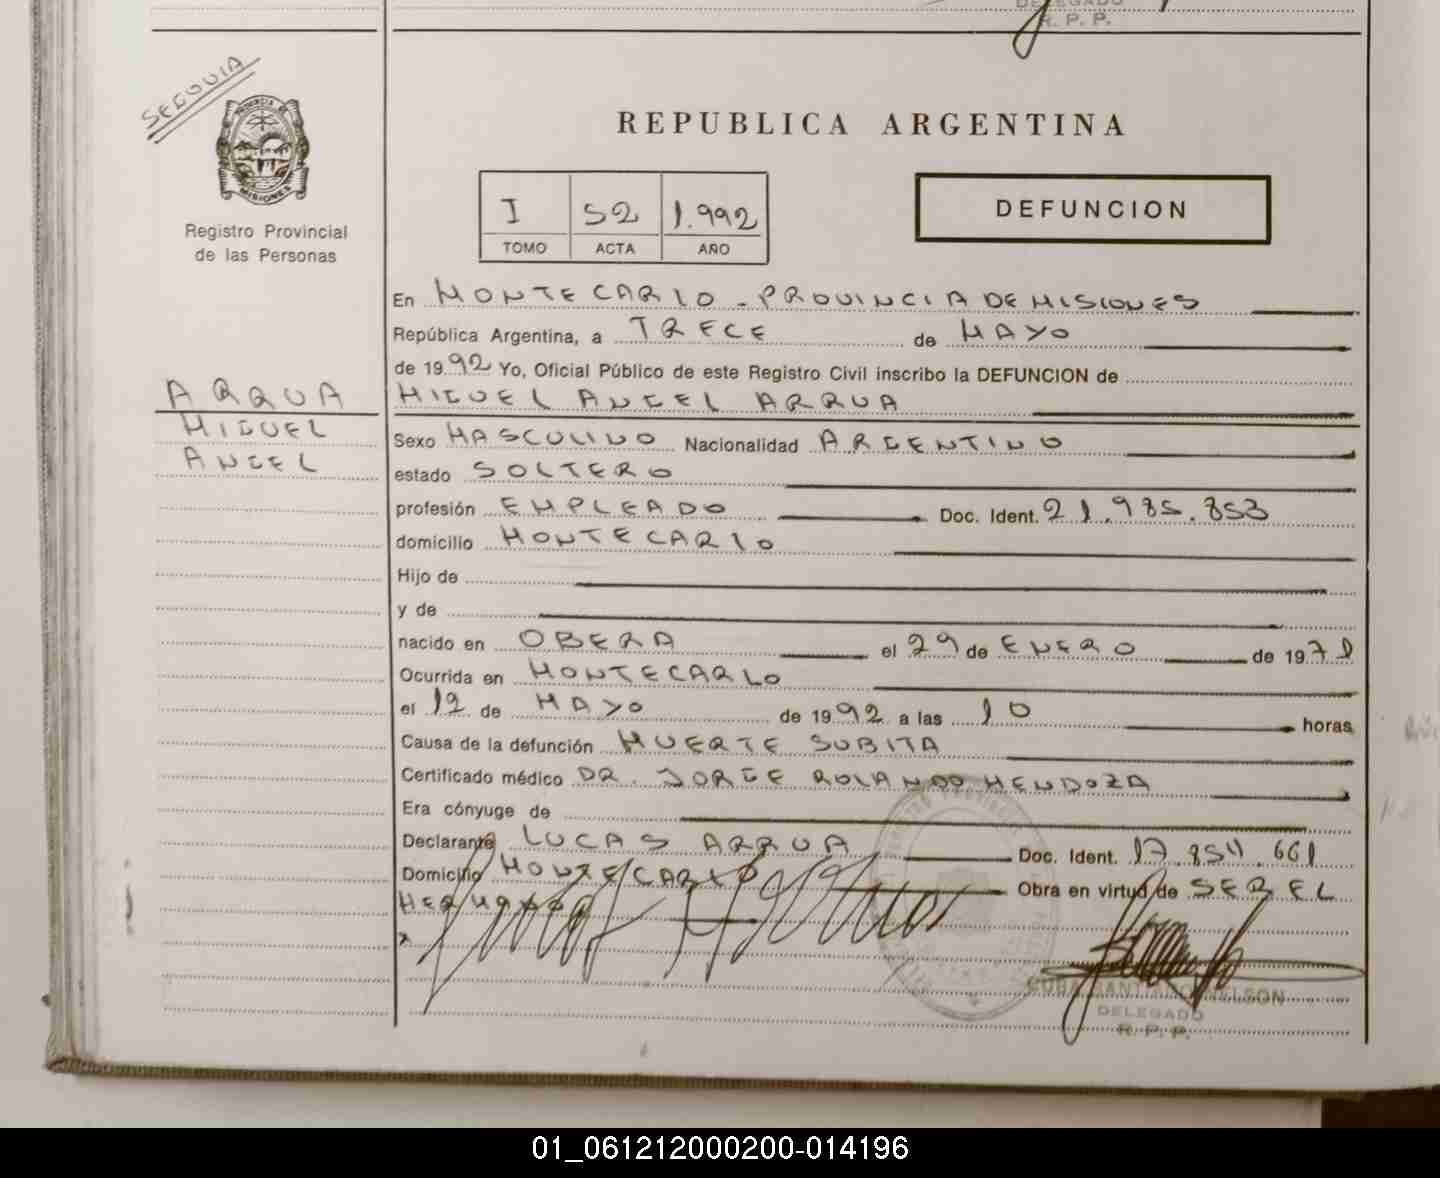 DELEGADO
R. P. P.
SEGOVIA
PROVINCIA DE
MISIONES
Registro Provincial
de las Personas
REPUBLICA ARGENTINA
I 52 1.992
TOMO ACTA AÑO
DEFUNCION
En MONTECARLO - PROVINCIA DE MISIONES
República Argentina, a TRECE de MAYO
de 1992 Yo, Oficial Público de este Registro Civil inscribo la DEFUNCION de
ARRUA
MIGUEL
ANGEL
MIGUEL ANGEL ARRUA
Sexo MASCULINO Nacionalidad ARGENTINO
estado SOLTERO
profesión EMPLEADO Doc. Ident. 21.985.853
domicilio MONTECARLO
Hijo de
y de
nacido en OBERA el 29 de ENERO de 1971
Ocurrida en MONTECARLO
el 12 de MAYO de 1992 a las 10 horas
Causa de la defunción MUERTE SUBITA
Certificado médico DR. JORGE ROLANDO MENDOZA
Era cónyuge de
Declarante LUCAS ARRUA Doc. Ident. 17.854.661
Domicilio MONTECARLO Obra en virtud de SER EL
HERMANO
NELSON
DELEGADO
R. P. P.
01_061212000200-014196